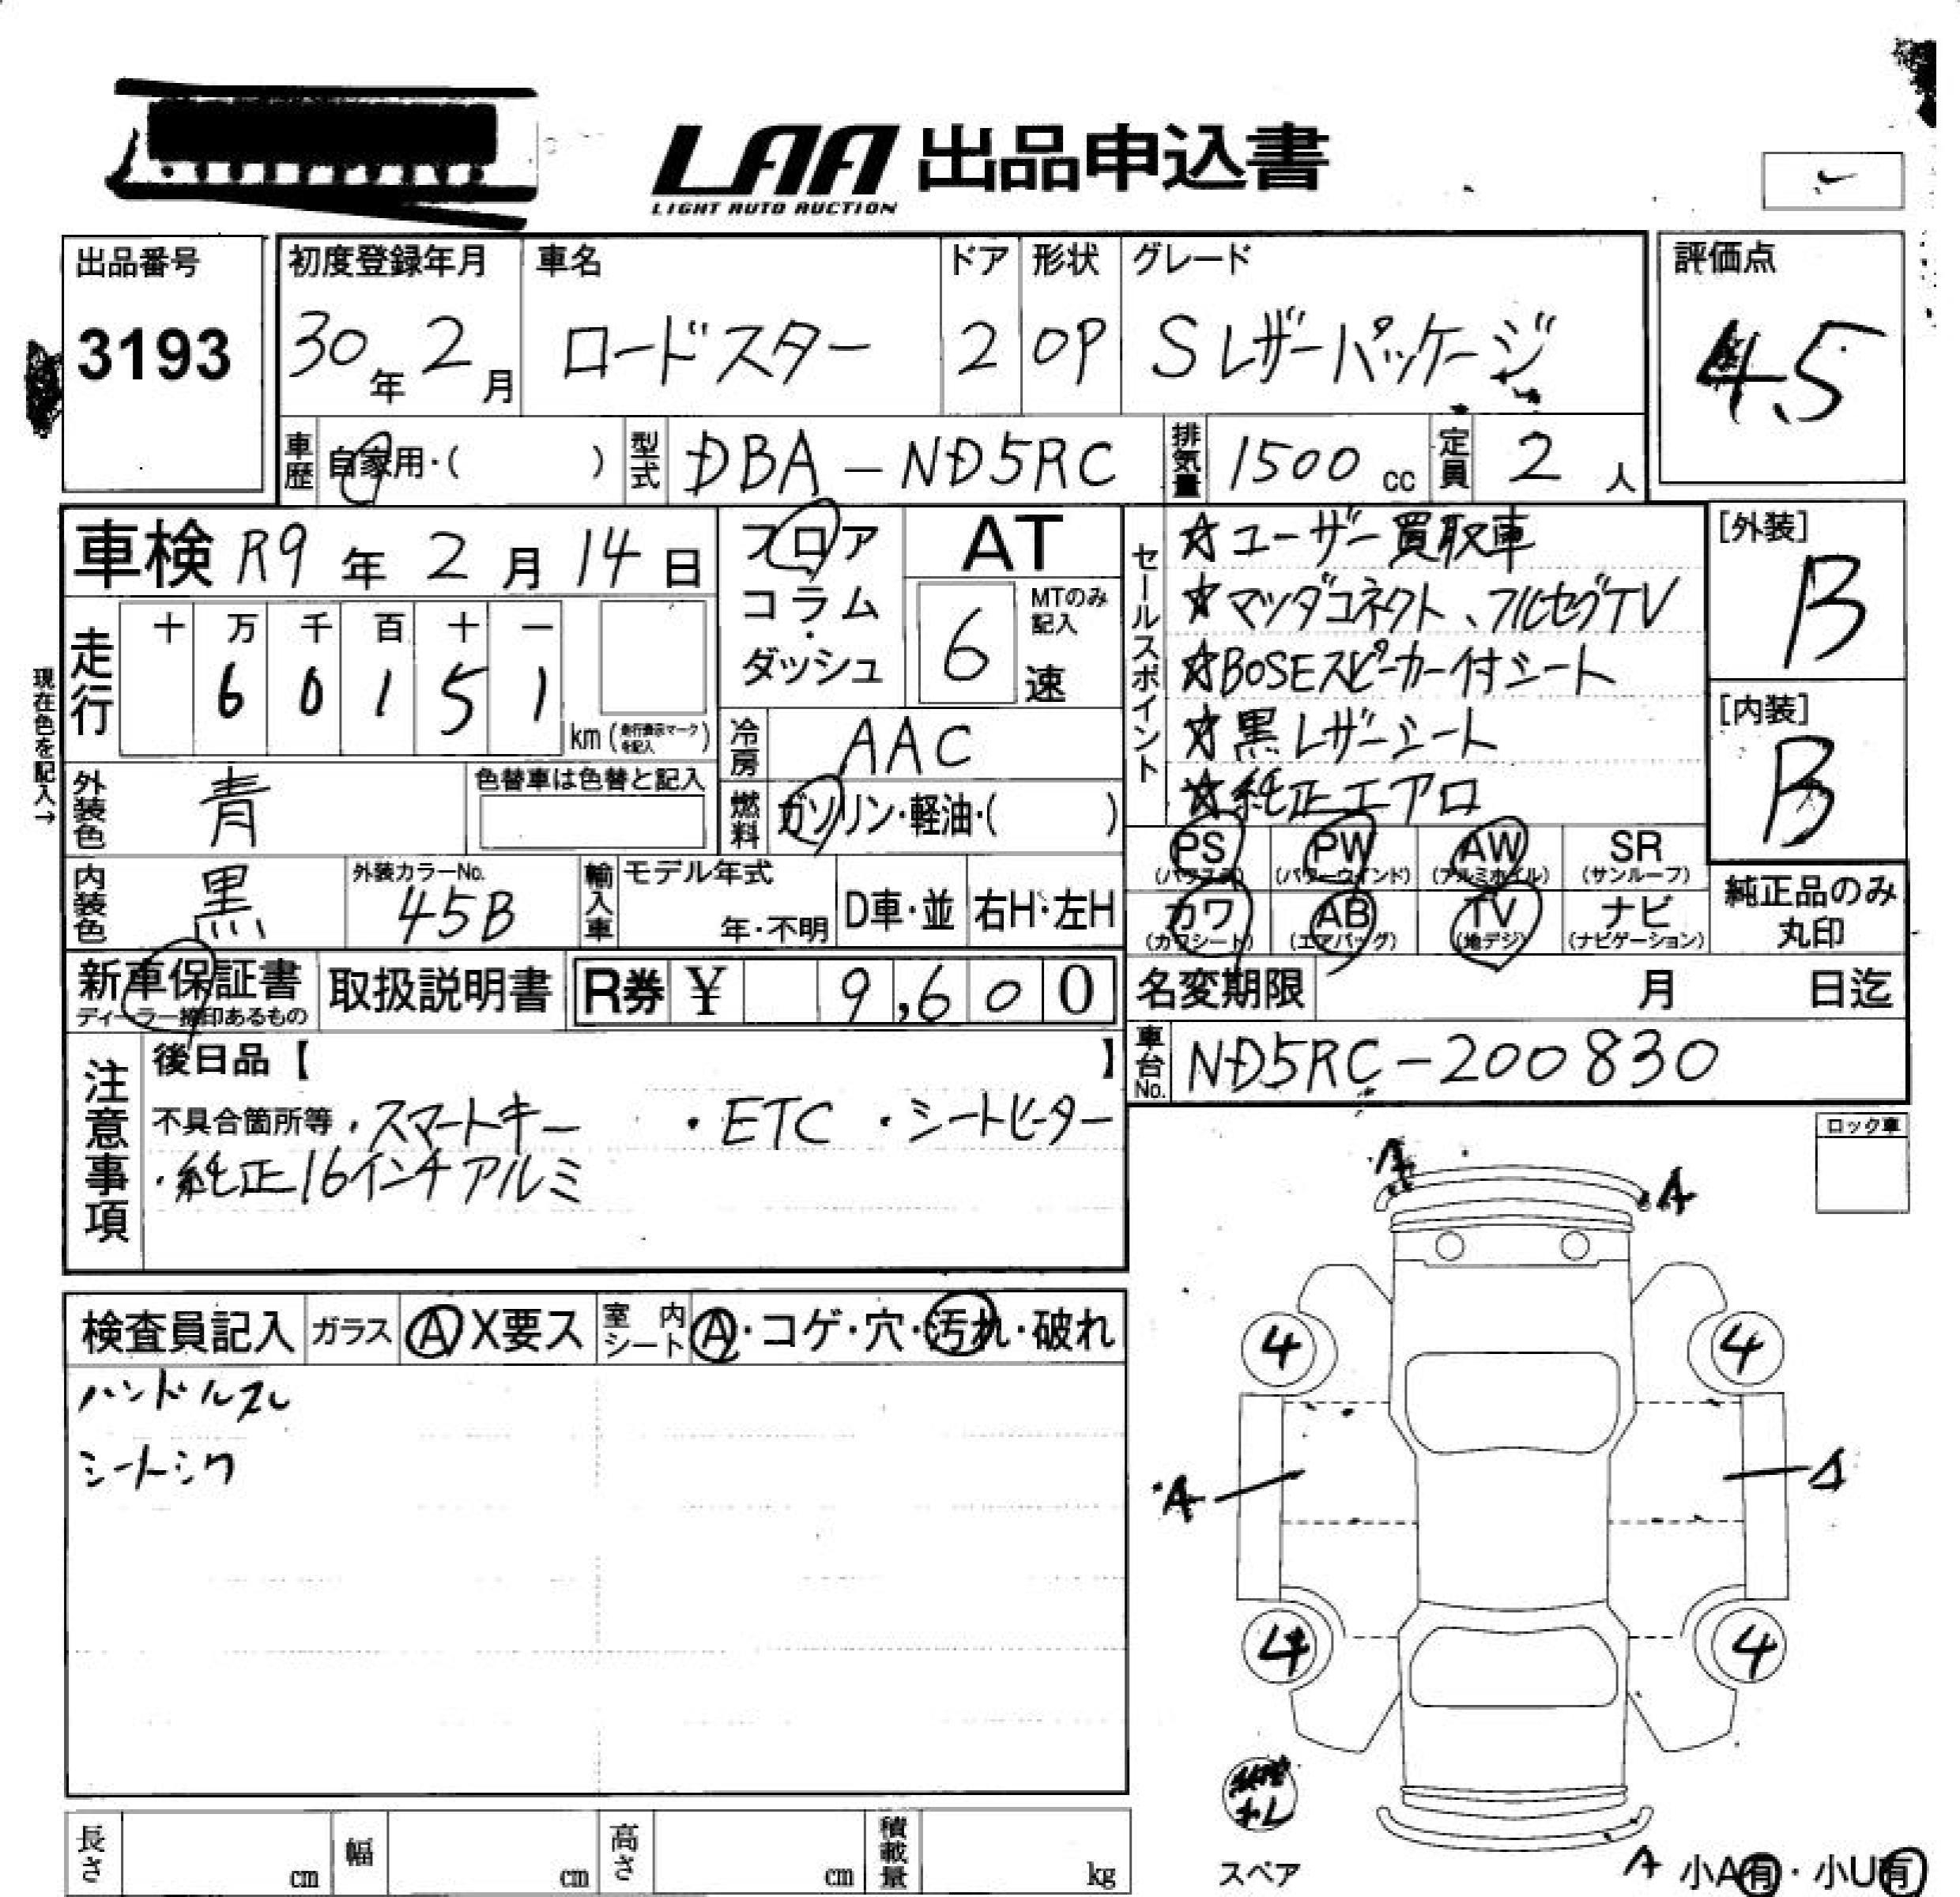 LAA 出品申込書
LIGHT AUTO AUCTION
出品番号
3193
初度登録年月
30年 2月
車名
ロードスター
ドア
2
形状
OP
グレード
S レザーパッケージ
評価点
4.5
車歴 自家用・( )
型式 DBA-ND5RC
排気量 1500 cc
定員 2 人
車検 R9年 2月 14日
フロア
コラム
・
ダッシュ
AT
6
MTのみ記入
速
現在色を記入→
走行
十 万 千 百 十 一
6 0 1 5 1
km (走行表示マークを記入)
冷房 AAC
外装色 青
色替車は色替と記入
燃料 ガソリン・軽油・( )
内装色 黒
外装カラーNo.
45B
輸入車
モデル年式
年・不明
D車・並
右H・左H
セールスポイント
☆ユーザー買取車
☆マツダコネクト、フルセグTV
☆BOSEスピーカー付シート
☆黒レザーシート
☆純正エアロ
[外装]
B
[内装]
B
PS (パワステ)
PW (パワーウインド)
AW (アルミホイル)
SR (サンルーフ)
カワ (カワシート)
AB (エアバッグ)
TV (地デジ)
ナビ (ナビゲーション)
純正品のみ
丸印
新車保証書
ディーラー捺印あるもの
取扱説明書
R券 ¥ 9,600
名変期限 月 日迄
車台No. ND5RC-200830
注意事項
後日品【 】
不具合箇所等 ・スマートキー ・ETC ・シートヒーター
・純正16インチアルミ
ロック車
A
A
検査員記入 ガラス A X要ス 室内シート A・コゲ・穴・汚れ・破れ
ハンドルスレ
シートシワ
4
4
A
A
4
4
スペア
A 小A有・小U有
長さ cm
幅 cm
高さ cm
積載量 kg